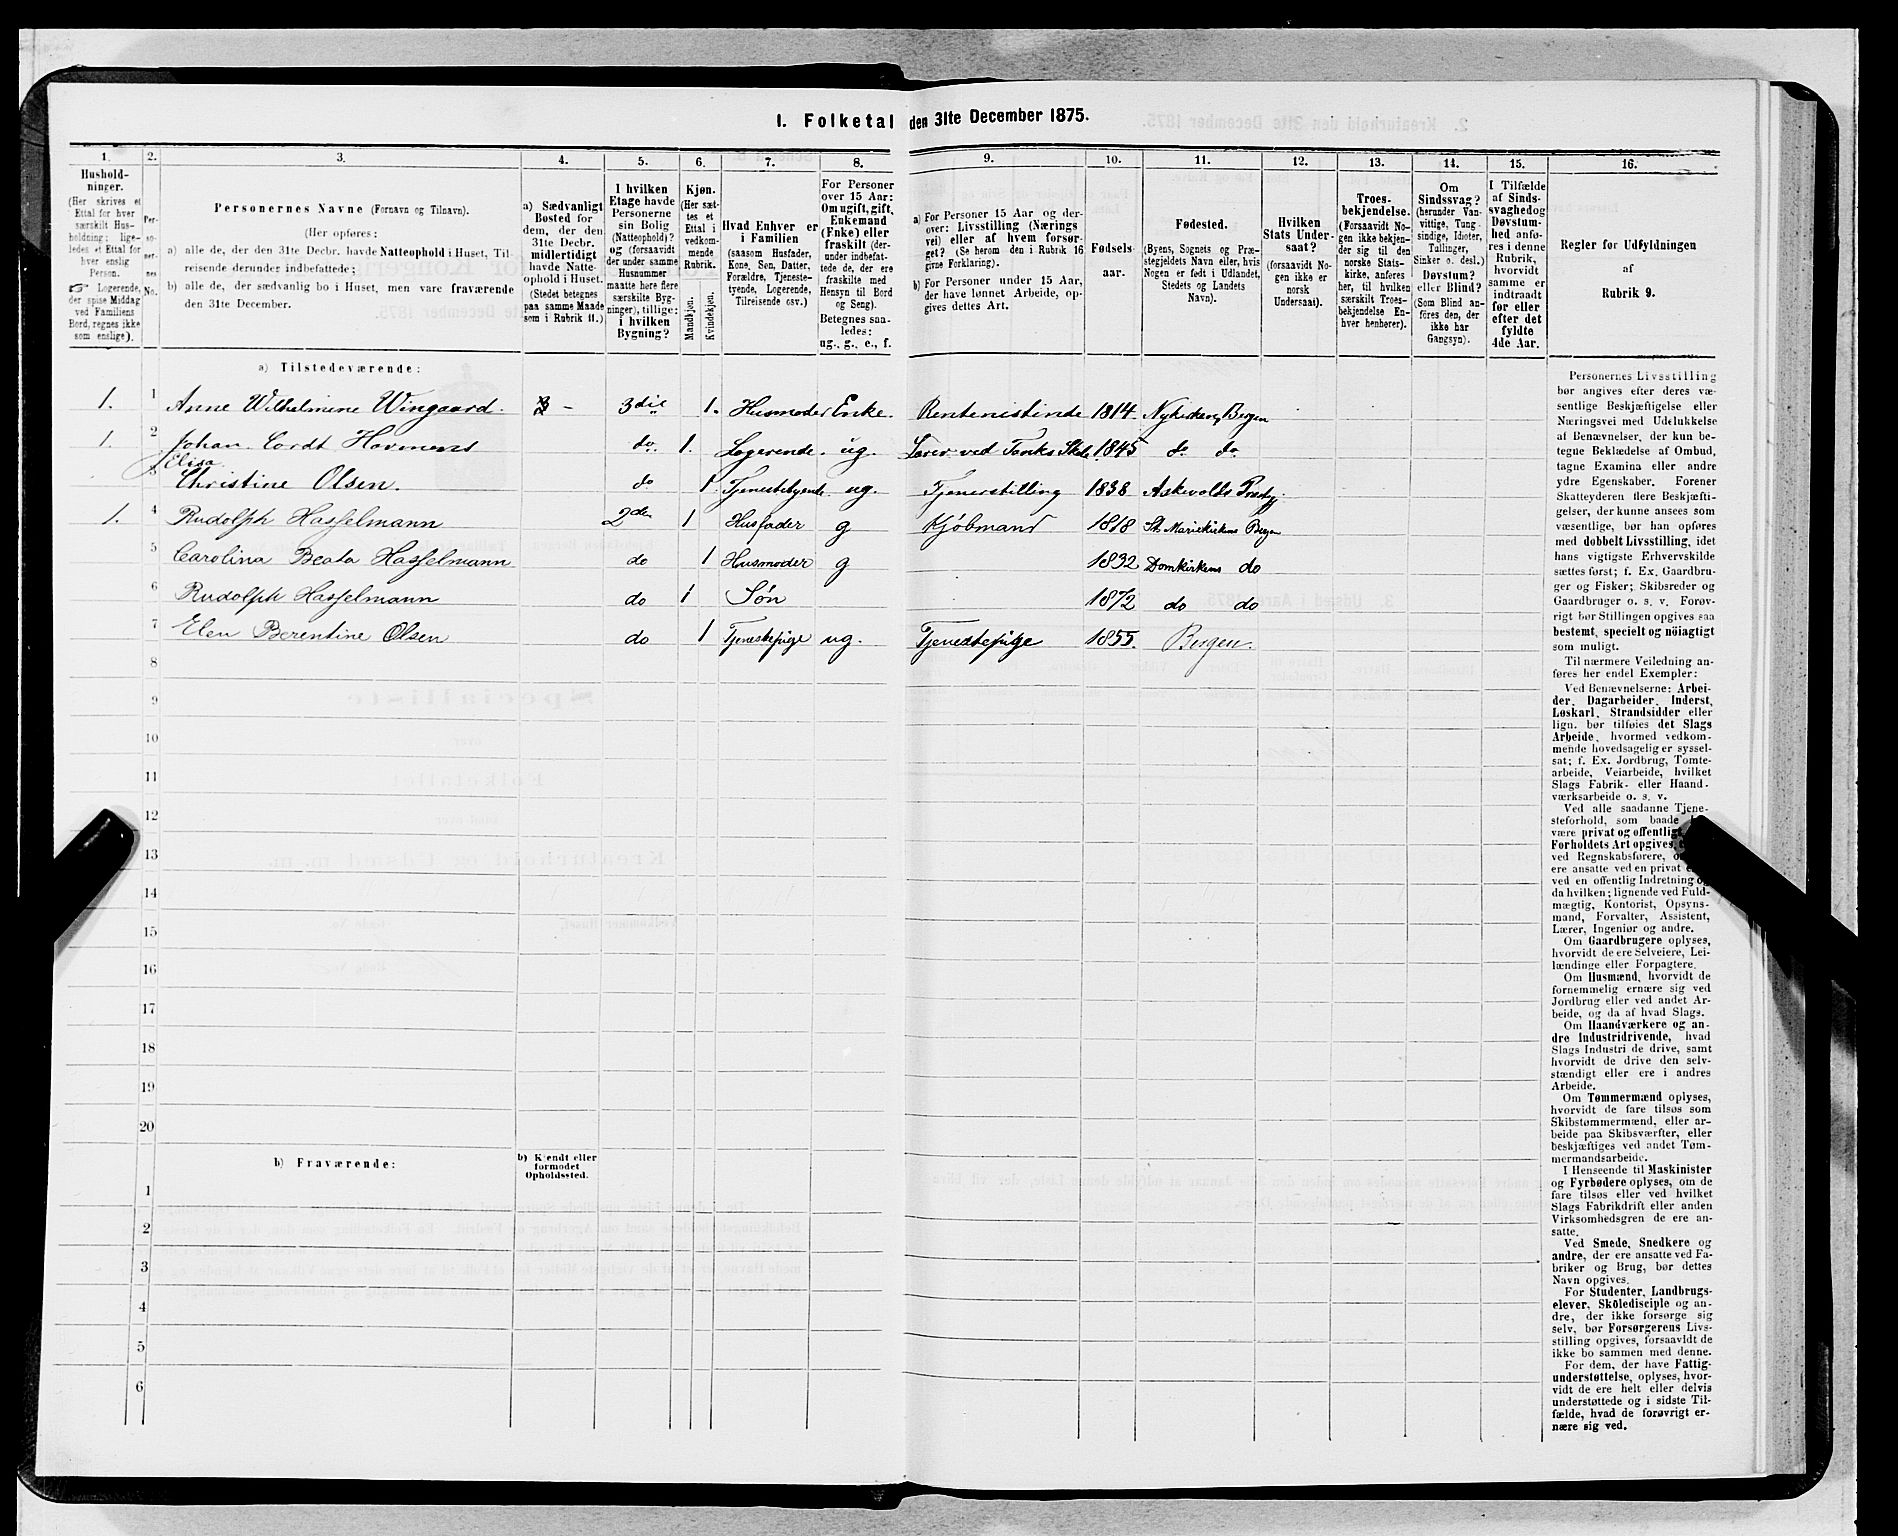 I. Folketal den 31te December 1875.
1. 2. 3. 4. 5. 6. 7. 8. 9. 10. 11. 12. 13. 14. 15. 16.
Hushold-
ninger.
(Her skrives et
Ettal for hver
særskilt Hus-
holdning; lige-
ledes et Ettal for
hver enslig
Person.
☞ Logerende,
der spise Middag
ved Familiens
Bord, regnes ikke
som enslige).
Per-
so-
ner-
nes
No.
Personernes Navne (Fornavn og Tilnavn).
(Her opføres:
a) alle de, der den 31te Decbr. havde Natteophold i Huset, Til-
reisende derunder indbefattede;
b) alle de, der sædvanlig bo i Huset, men vare fraværende
den 31te December.
a) Sædvanligt
Bosted for
dem, der den
31te Decbr.
midlertidigt
havde Natte-
ophold i Huset.
(Stedet betegnes
paa samme Maade
som i Rubrik 11.)
I hvilken
Etage havde
Personerne
sin Bolig
(Natteophold)?
og (forsaavidt
der under samme
Husnummer
maatte høre flere
særskilte Byg-
ninger), tillige:
i hvilken
Bygning?
Kjøn.
(Her sæt-
tes et
Ettal i
vedkom-
mende
Rubrik.
Mandkjøn.
Kvindekjøn.
Hvad Enhver er
i Familien
(saasom Husfader,
Kone, Søn, Datter,
Forældre, Tjeneste-
tyende, Logerende,
Tilreisende osv.)
For Personer
over 15 Aar:
Om ugift, gift,
Enkemand
(Enke) eller
fraskilt (der-
under indbefat-
tede de, der ere
fraskilte med
Hensyn til Bord
og Seng).
Betegnes saa-
ledes:
ug., g., e., f.
a) For Personer 15 Aar og der-
over: Livsstilling (Nærings
vei) eller af hvem forsør-
get? (Se herom den i Rubrik 16
givne Forklaring).
b) For Personer under 15 Aar,
der have lønnet Arbeide, op-
gives dettes Art.
Fødsels-
aar.
Fødested.
(Byens, Sognets og Præ-
stegjeldets Navn eller, hvis
Nogen er født i Udlandet,
Stedets og Landets
Navn).
Hvilken
Stats Under-
saat?
(forsaavidt No-
gen ikke er
norsk
Undersaat).
Troes-
bekjendelse.
(Forsaavidt No-
gen ikke bekjen-
der sig til den
norske Stats-
kirke, anføres
her, til hvilken
særskilt Troes-
bekjendelse En-
hver henhører).
Om
Sindssvag?
(herunder Van-
vittige, Tung-
sindige, Idioter,
Tullinger,
Sinker o. desl.)
Døvstum?
eller Blind?
(Som Blind an-
føres den, der
ikke har
Gangsyn).
I Tilfælde
af Sinds-
svaghed og
Døvstum-
hed anfø-
res i denne
Rubrik,
hvorvidt
samme er
indtraadt
før eller
efter det
fyldte
4de Aar.
Regler for Udfyldningen
af
Rubrik 9.
a) Tilstedeværende:
1. 1 Anne Wilhelmine Wingaard. - 3die 1. Husmoder Enke. Rentenistinde 1814. Nykirken, Bergen
1. 2 Johan Cordt Harmens do. 1. Logerende. ug. Lærer ved Tanks Skole 1845 do do
Elisa
3 Christine Olsen. do 1. Tjenestetyende. ug. Tjenerstilling 1838 Askevolds Præstgj.
1. 4 Rudolph Hasselmann 2den 1 Husfader g Kjøbmand 1818 St. Mariekirkens Bergen
5 Carolina Beata Hasselmann do 1 Husmoder g 1832 Domkirkens do
6 Rudolph Hasselmann do 1 Søn 1872 do do
7 Elen Berentine Olsen do 1 Tjenestepige ug. Tjenestepige 1855. Bergen.
8
9
10
11
12
13
14
15
16
17
18
19
20
b) Fraværende:
b) Kjendt eller
formodet
Opholdssted.
1
2
3
4
5
6
Personernes Livsstilling
bør angives efter deres væ-
sentlige Beskjæftigelse eller
Næringsvei med Udelukkelse
af Benævnelser, der kun be-
tegne Beklædelse af Ombud,
tagne Examina eller andre
ydre Egenskaber. Forener
Skatteyderen flere Beskjæfti-
gelser, der kunne ansees som
væsentlige, bør han opføres
med dobbelt Livsstilling, idet
hans vigtigste Erhvervskilde
sættes først; f. Ex. Gaardbru-
ger og Fisker; Skibsreder og
Gaardbruger o. s. v. Forøv-
rigt bør Stillingen opgives saa
bestemt, specielt og nöiagtigt
som muligt.
Til nærmere Veiledning an-
føres her endel Exempler:
Ved Benævnelserne: Arbei-
der, Dagarbeider, Inderst,
Løskarl, Strandsidder eller
lign. bør tilføies det Slags
Arbeide, hvormed vedkom-
mende hovedsagelig er syssel-
sat; f. Ex. Jordbrug, Tomte-
arbeide, Veiarbeide, hvilket
Slags Fabrik- eller Haand-
værksarbeide o. s. v.
Ved alle saadanne Tjene-
steforhold, som baade
være privat og offentligt,
Forholdets Art opgives,
ved Regnskabsførere,
ere ansatte ved en privat
ved en offentlig Indretning
da hvilken; lignende ved Fuld-
mægtig, Kontorist, Opsyns-
mand, Forvalter, Assistent,
Lærer, Ingeniør og andre.
Om Gaardbrugere oplyses,
hvorvidt de ere Selveiere, Lei-
lændinge eller Forpagtere.
Om Husmænd, hvorvidt de
fornemmelig ernære sig ved
Jordbrug eller ved andet Ar-
beide, og da af hvad Slags.
Om Haandværkere og an-
dre Industridrivende, hvad
Slags Industri de drive, samt
hvorvidt de drive den selv-
stændigt eller ere i andres
Arbeide.
Om Tømmermænd oplyses,
hvorvidt de fare tilsøs som
Skibstømmermænd, eller ar-
beide paa Skibsværfter, eller
beskjæftiges ved andet Tøm-
mermandsarbeide.
I Henseende til Maskinister
og Fyrbødere oplyses, om de
fare tilsøs eller ved hvilket
Slags Fabrikdrift eller anden
Virksomhedsgren de ere an-
satte.
Ved Smede, Snedkere og
andre, der ere ansatte ved Fa-
briker og Brug, bør dettes
Navn opgives.
For Studenter, Landbrugs-
elever, Skoledisciple og an-
dre, der ikke forsørge sig
selv, bør Forsørgerens Livs-
stilling opgives, forsaavidt de
ikke bo sammen med denne.
For dem, der have Fattig-
understøttelse, oplyses, hvor-
vidt de ere helt eller delvis
understøttede og i sidste Til-
fælde, hvad de forøvrigt er-
nære sig ved.